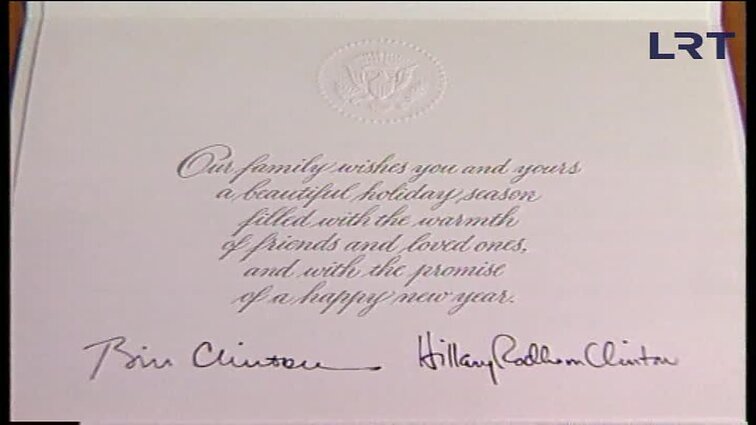 LRT
Our family wishes you and yours
a beautiful holiday season
filled with the warmth
of friends and loved ones,
and with the promise
of a happy new year.
Bill Clinton Hillary Rodham Clinton